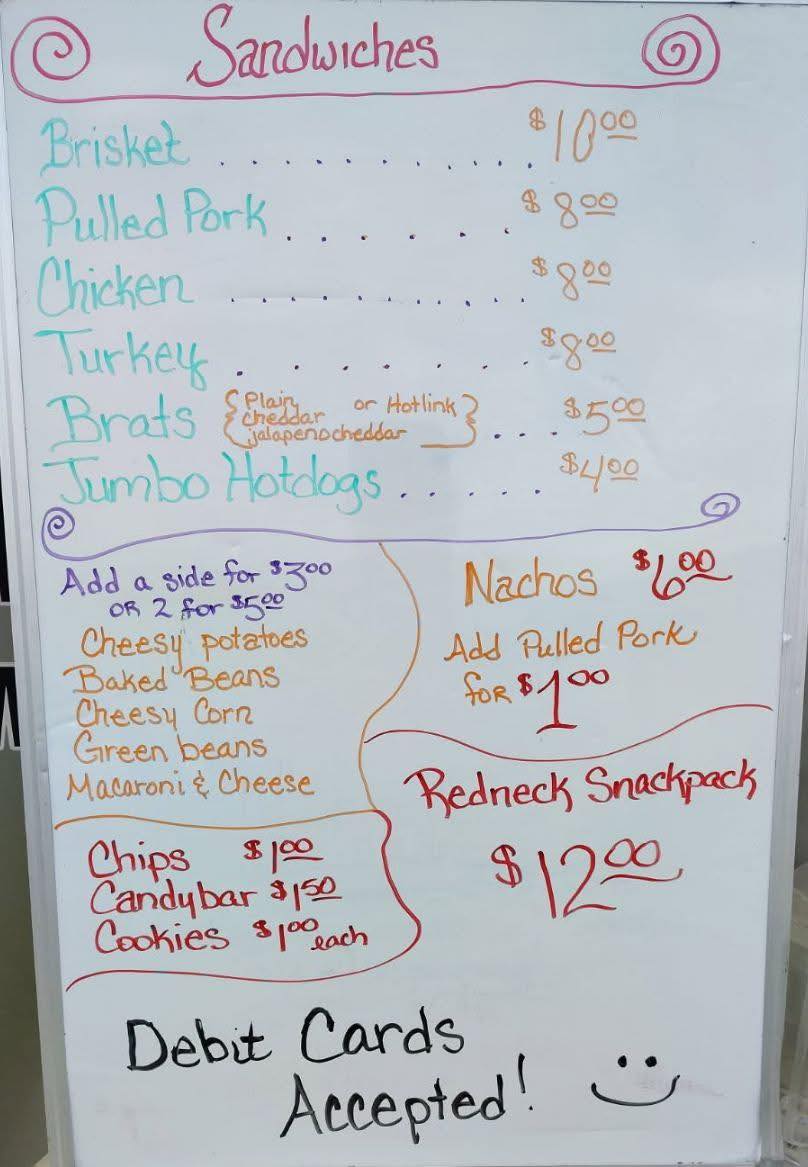 Sandwiches
Brisket . . . . . . . . . . . . $10.00
Pulled Pork . . . . . . $8.00
Chicken . . . . . . . . . . . $8.00
Turkey . . . . . . . $8.00
Brats { Plain or Hotlink
cheddar
jalapenocheddar } . . . . $5.00
Jumbo Hotdogs . . . . . . $4.00
Add a side for $3.00
OR 2 for $5.00
Cheesy potatoes
Baked Beans
Cheesy Corn
Green beans
Macaroni & Cheese
Nachos $6.00
Add Pulled Pork
for $1.00
Redneck Snackpack
$12.00
Chips $1.00
Candybar $1.50
Cookies $1.00 each
Debit Cards
Accepted!